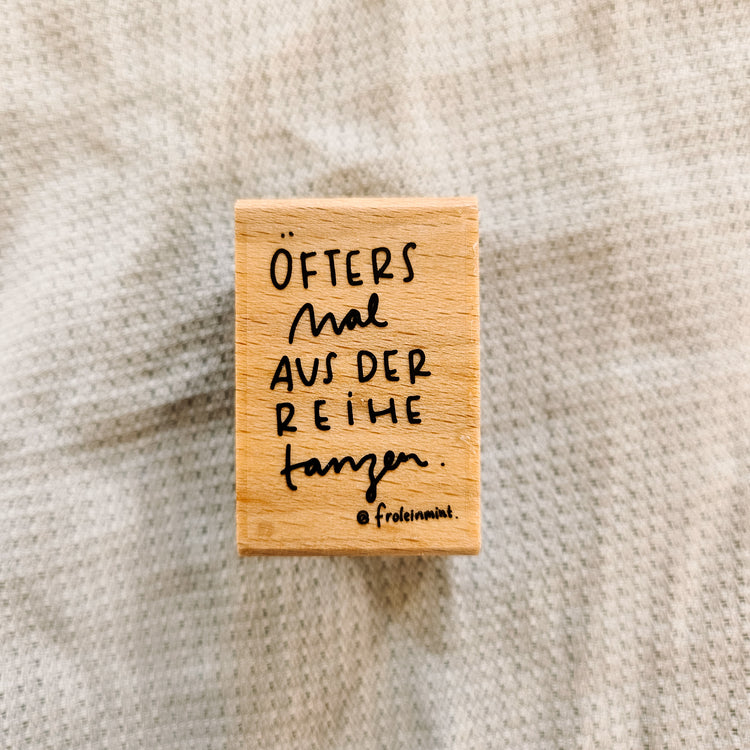 ÖFTERS
mal
AUS DER
REIHE
tanzen.
@froleinmint.